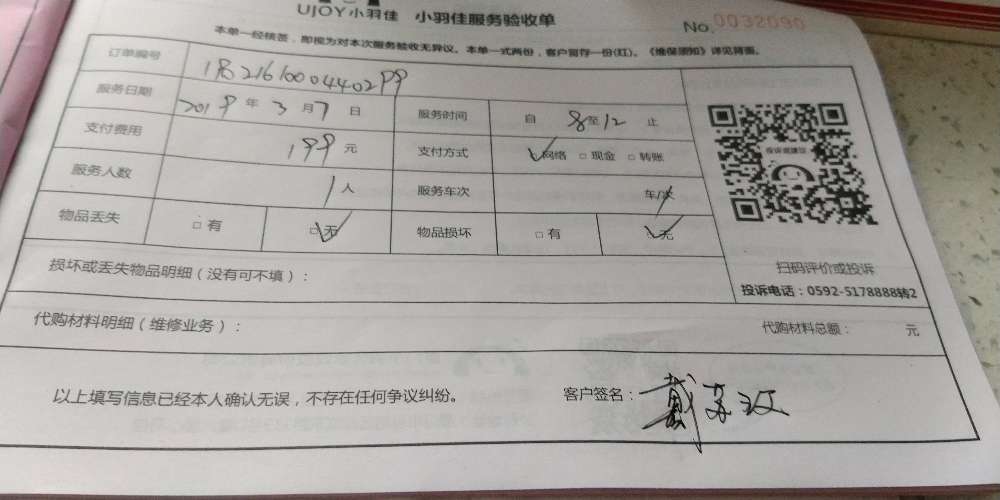 UJOY小羽佳 小羽佳服务验收单
No. 0032090
本单一经核签,即视为对本次服务验收无异议。本单一式两份,客户留存一份(红)。《维保须知》详见背面。
订单编号 18216100044029９
服务日期 2019年3月7日 服务时间 自 8至12 止
支付费用 199元 支付方式 ☑网络 □现金 □转账
服务人数 1人 服务车次 车/次
物品丢失 □有 ☑无 物品损坏 □有 ☑无
投诉或建议
扫码评价或投诉
投诉电话:0592-5178888转2
损坏或丢失物品明细(没有可不填):
代购材料明细(维修业务): 代购材料总额: 元
以上填写信息已经本人确认无误,不存在任何争议纠纷。 客户签名:戴